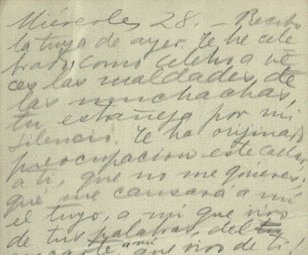 Miércoles 28. - Recibo
la tuya de ayer. Te he cele
brado, como celebro a ve
ces las maldades de
las muchachas,
tu extrañeza por mi
silencio. Te ha originado
preocupación este callar
a ti, que no me quieres.
que me causará a mí
el tuyo, a mí que vivo
de tus palabras, del tuyo
amor, que vivo de ti!